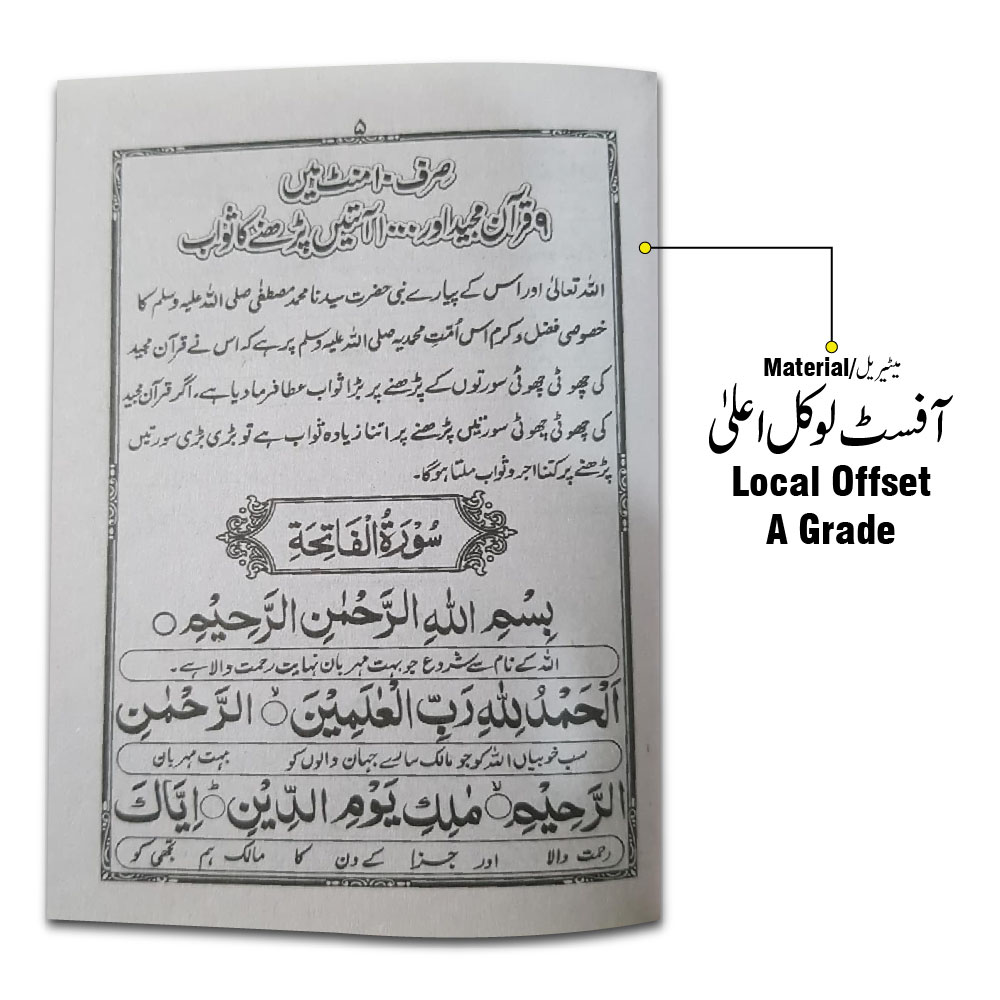 ۵
صرف ۱۰ منٹ میں
۹ قرآن مجید اور ۱۱۰۰۰ آیتیں پڑھنے کا ثواب
اللہ تعالیٰ اور اس کے پیارے نبی حضرت سیدنا محمد مصطفٰی صلی اللہ علیہ وسلم کا
خصوصی فضل و کرم اس اُمّتِ محمدیہ صلی اللہ علیہ وسلم پر ہے کہ اس نے قرآن مجید
کی چھوٹی چھوٹی سورتوں کے پڑھنے پر بڑا ثواب عطا فرما دیا ہے، اگر قرآن مجید
کی چھوٹی چھوٹی سورتیں پڑھنے پر اتنا زیادہ ثواب ہے تو بڑی بڑی سورتیں
پڑھنے پر کتنا اجر و ثواب ملتا ہوگا۔
سُوْرَةُ الْفَاتِحَةِ
بِسْمِ اللهِ الرَّحْمٰنِ الرَّحِيْمِ ○
اللہ کے نام سے شروع جو بہت مہربان نہایت رحمت والا ہے۔
اَلْحَمْدُ لِلّٰهِ رَبِّ الْعٰلَمِيْنَ ○ۙ الرَّحْمٰنِ
سب خوبیاں اللہ کو جو مالک سارے جہان والوں کو بہت مہربان
الرَّحِيْمِ ○ۙ مٰلِكِ يَوْمِ الدِّيْنِ ○ؕ اِيَّاكَ
رحمت والا اور جزا کے دن کا مالک ہم تجھی کو
Material/میٹیریل
آفسٹ لوکل اعلیٰ
Local Offset
A Grade